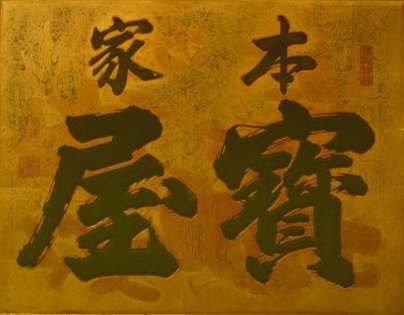 本家
寶屋